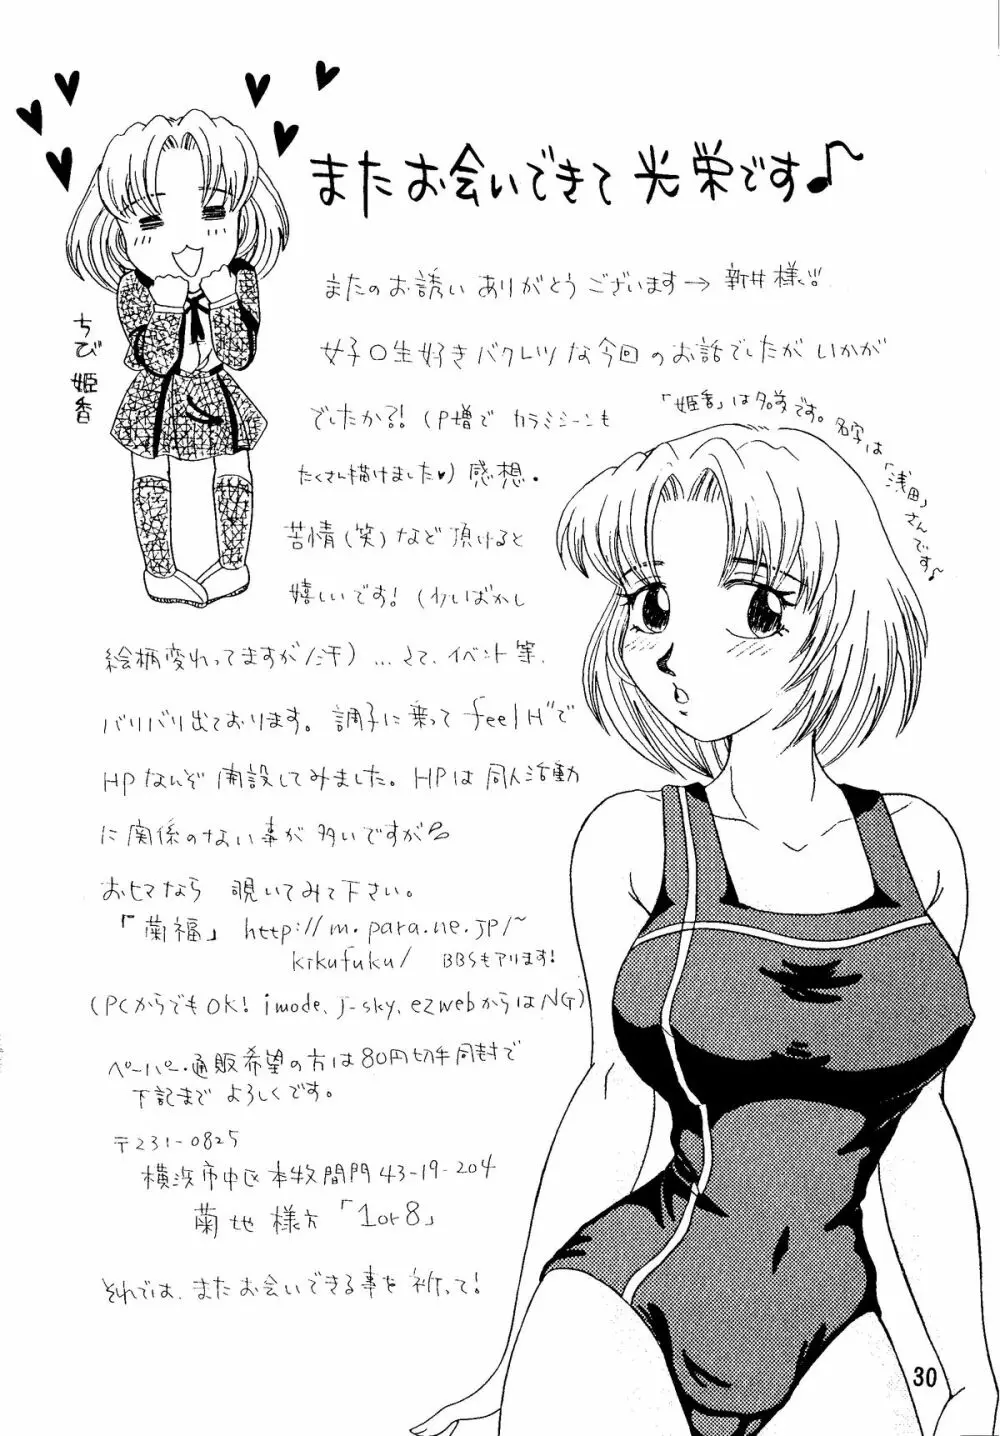 またお会いできて光栄です♪
またのお誘いありがとうございます→新井様!!
女子〇生好きバクレツな今回のお話でしたがいかが
でしたか?! (P増でカラミシーンも
たくさん描けました♥) 感想・
苦情(笑)など頂けると
嬉しいです! (わいばかし
絵柄変わってますが/汗) …さて、イベント等、
バリバリ出ております。調子に乗って feelH"で
HPなんぞ開設してみました。HPは同人活動
に関係のない事が多いですが
おヒマなら 覗いてみて下さい。
「蘭福」 http://m.para.ne.jp/~
kikufuku/ BBSもアリます!
(PCからでもOK! imode、j-sky、ezwebからはNG)
ペーパー・通販希望の方は80円切手同封で
下記まで よろしくです。
〒231-0825
横浜市中区本牧間門43-19-204
菊地様方「1or8」
それでは、またお会いできる事を祈って!
ちび姫香
「姫香」は名前です。名字は
「浅田」さんです♪
30